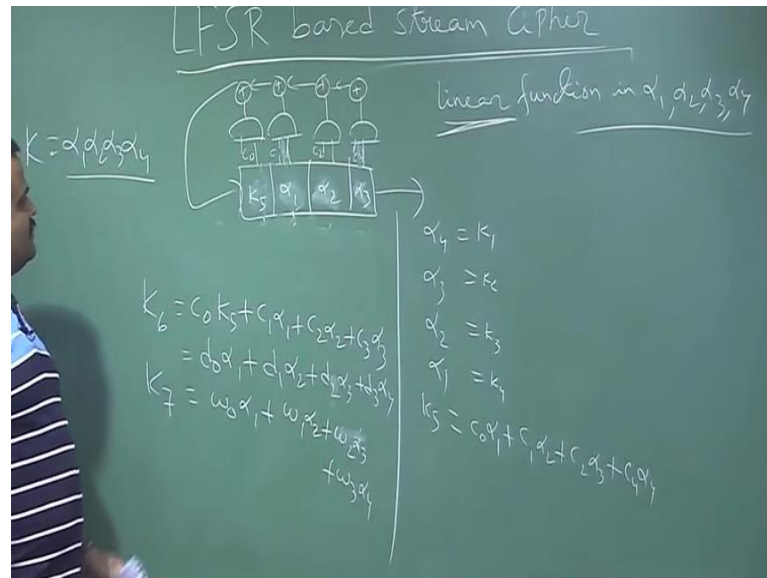 LFSR based Stream Cipher
linear function in α₁,α₂,α₃,α₄
K=α₁α₂α₃α₄
+ + + +
c₀
K₅ α₁ α₂ α₃
α₄ = K₁
α₃ = K₂
α₂ = K₃
α₁ = K₄
K₅ = c₀α₁+c₁α₂+c₂α₃+c₄α₄
K₆ = c₀K₅+c₁α₁+c₂α₂+c₃α₃
= d₀α₁+d₁α₂+d₂α₃+d₃α₄
K₇ = ω₀α₁+ω₁α₂+ω₂α₃
+ω₃α₄